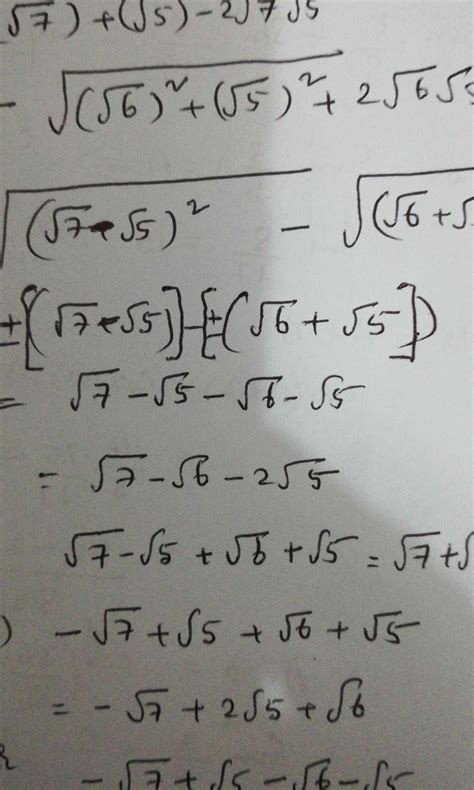 √7) + (√5) - 2√7 √5
- √((√6)² + (√5)² + 2√6 √5
√((√7 - √5)² - √((√6 + √
± [(√7 - √5)] - [±(√6 + √5)]
= √7 - √5 - √6 - √5
= √7 - √6 - 2√5
√7 - √5 + √6 + √5 = √7 + √
) - √7 + √5 + √6 + √5
= - √7 + 2√5 + √6
- √7 + √5 - √6 - √5